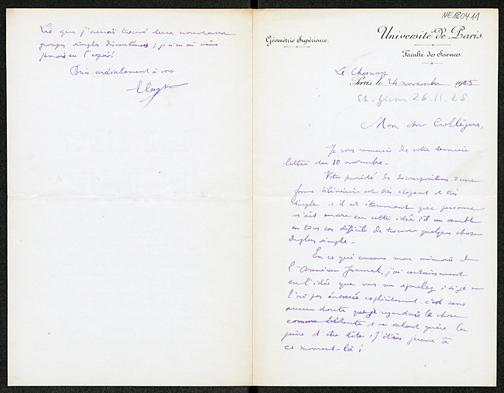 NE120411
Géométrie Supérieure.
Université de Paris
Faculté des Sciences
Le Chesnay
Paris, le 24 novembre 1925
26.11.25
Mon cher Collègue,
Je vous remercie de votre dernière
lettre du 10 novembre.
Votre procédé de décomposition d'une
forme bilinéaire est très élégant et très
simple et il est étonnant que personne
n'ait encore eu cette idée; il me semble
en tous cas difficile de trouver quelque chose
de plus simple.
En ce qui concerne mon mémoire de
l'American Journal, j'ai certainement
eu l'idée que vous me rappelez; si je ne
l'ai pas énoncée explicitement c'est sans
aucun doute que je regardais la chose
comme évidente et ne valant guère la
peine d'être dite; j'étais jeune à
ce moment-là!
que j'aurais trouvé deux nouveaux
groupes simples
jamais eu l'espoir
Bien cordialement à vous